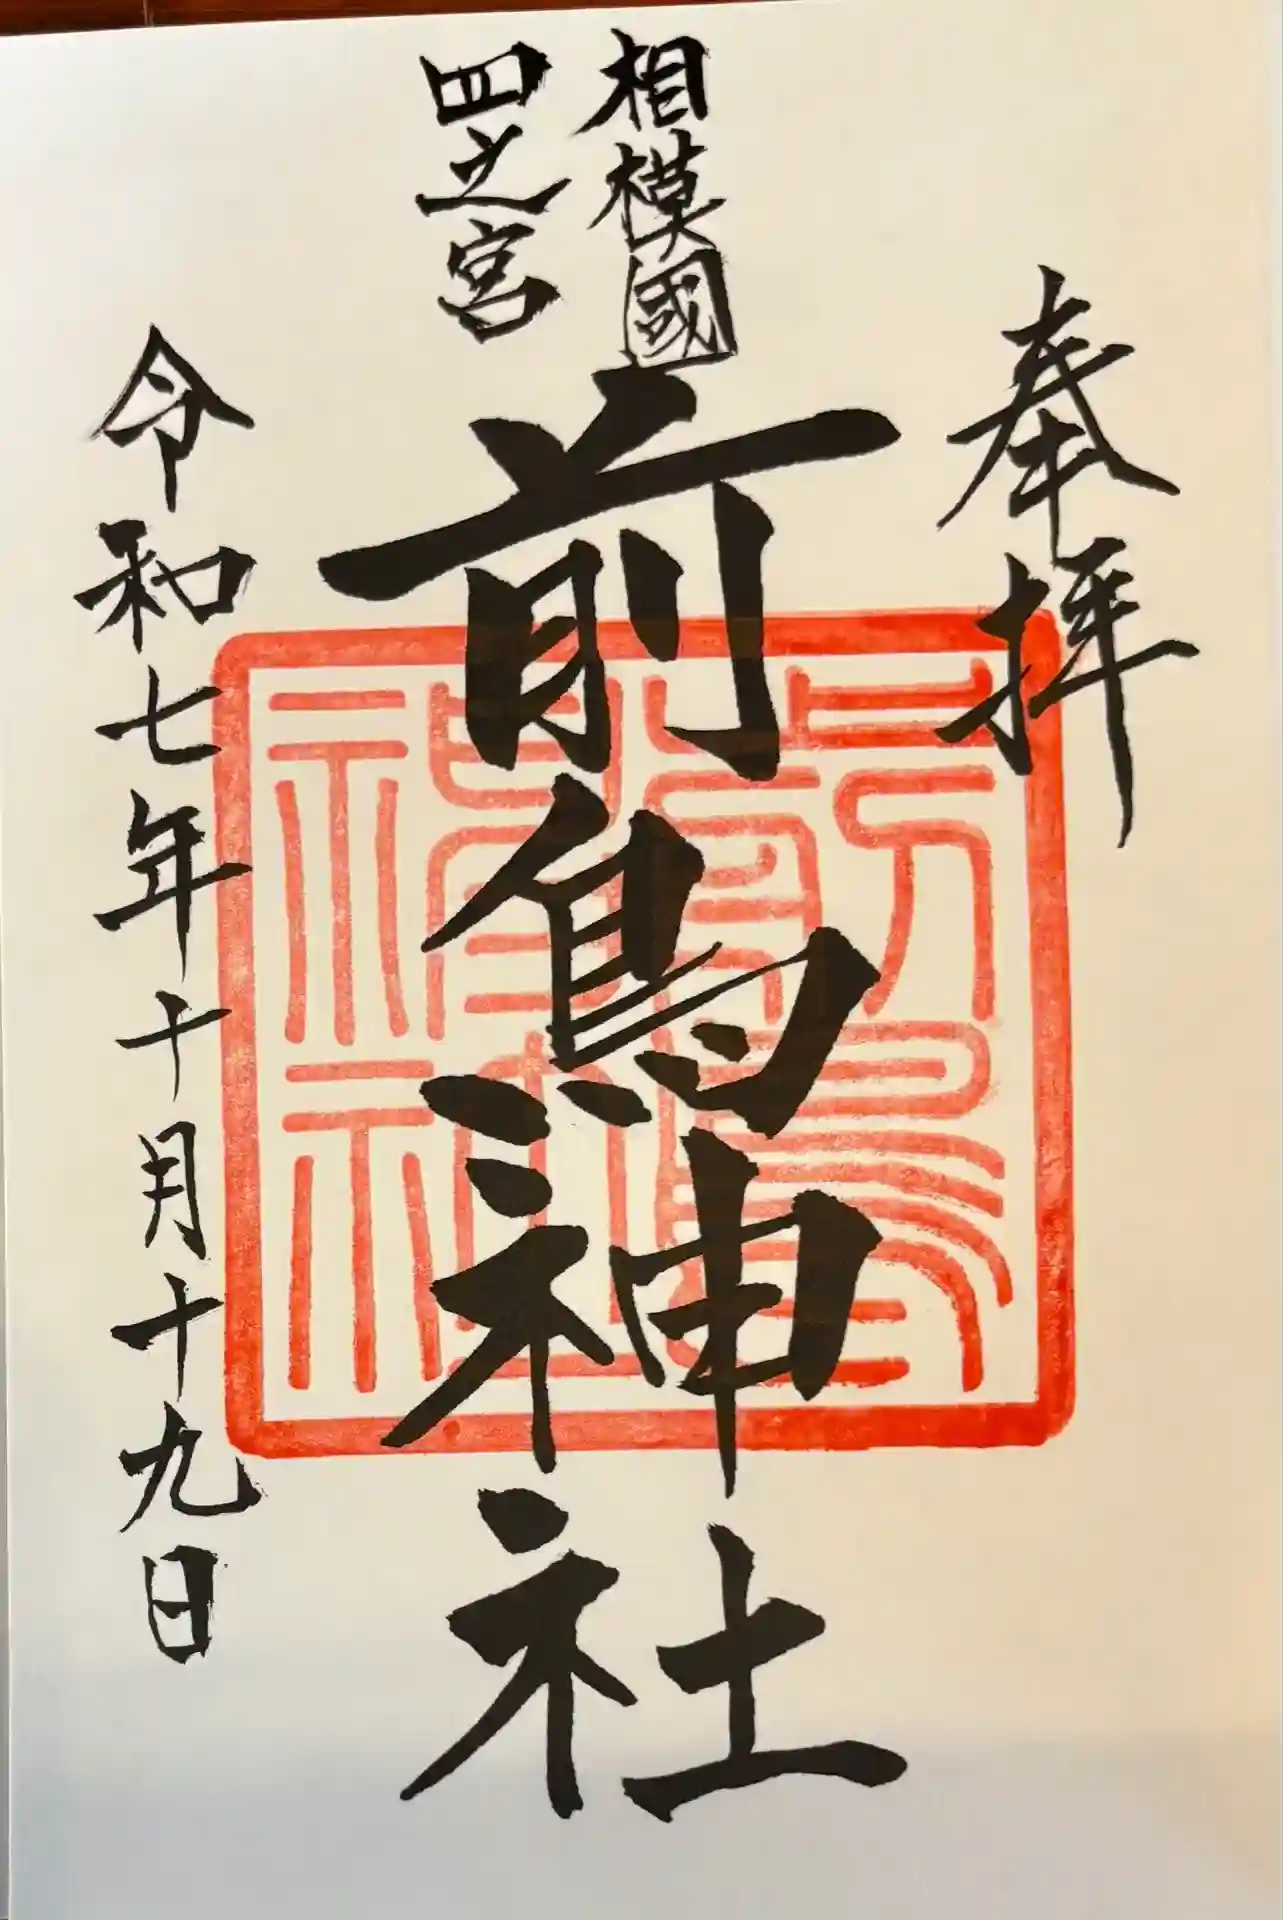 奉拝
相模國
四之宮
前鳥神社
令和七年十月十九日